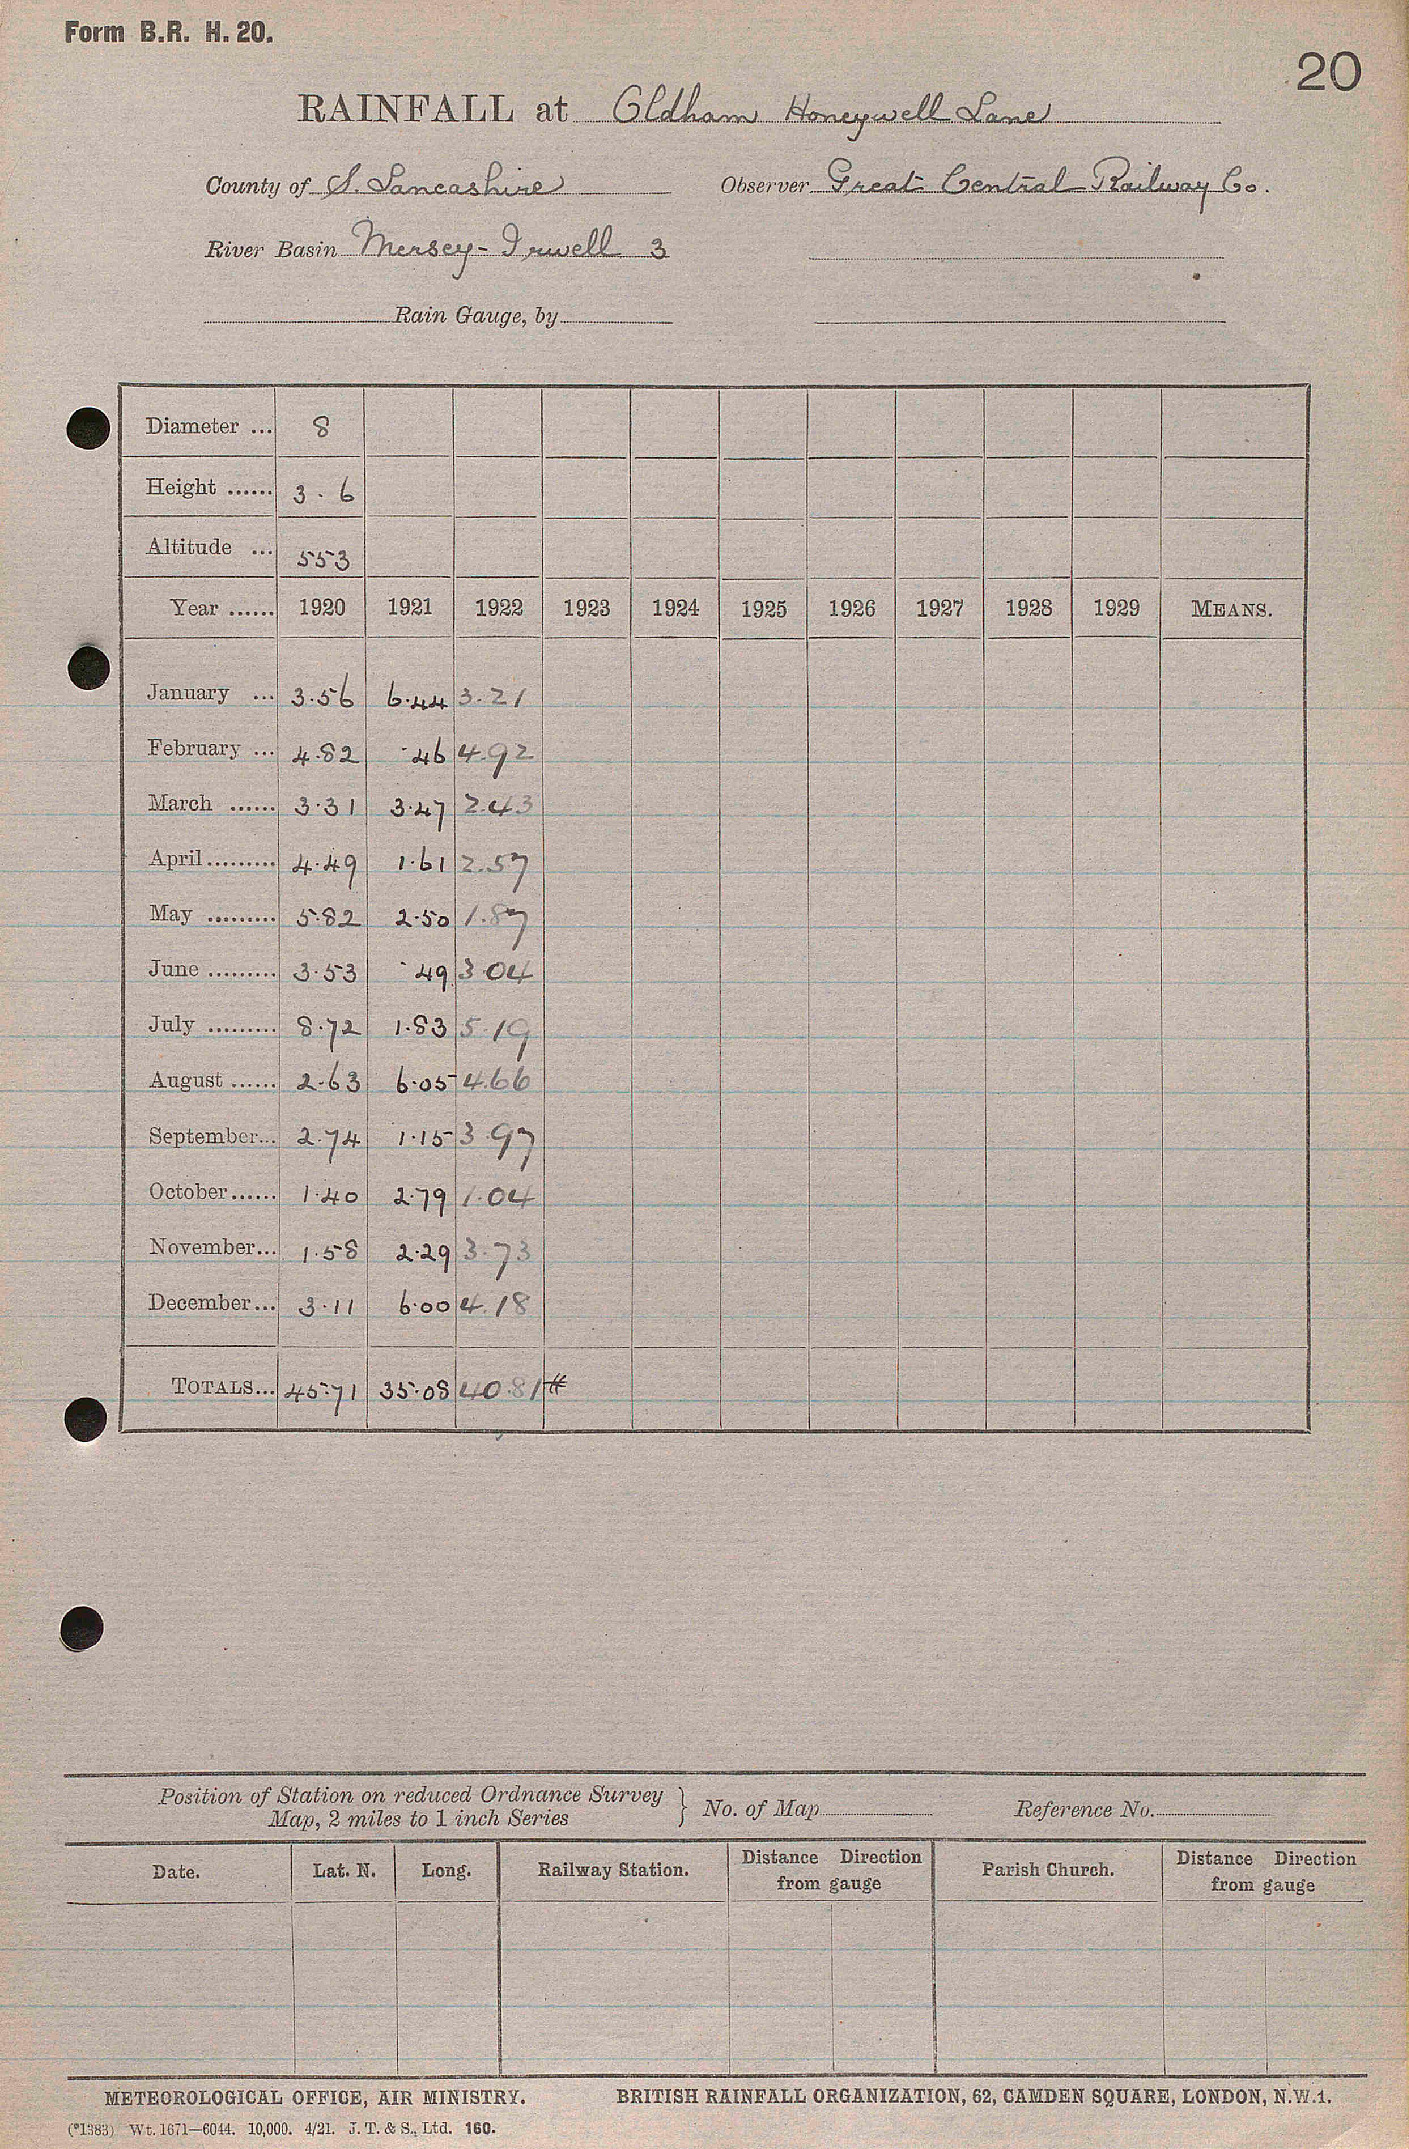 Form B.R. H. 20.
20
RAINFALL at Oldham Honeywell Lane
County of S. Lancashire Observer Great Central Railway Co.
River Basin Mersey-Irwell 3
Rain Gauge, by
Diameter ... 8
Height ...... 3 . 6
Altitude ... 553
Year ...... 1920 1921 1922 1923 1924 1925 1926 1927 1928 1929 MEANS.
January ... 3.56 6.44 3.21
February ... 4.82 .46 4.92
March ...... 3.31 3.47 2.43
April ......... 4.49 1.61 2.57
May ......... 5.82 2.50 1.87
June ......... 3.53 .49 3.04
July ......... 8.72 1.83 5.19
August ...... 2.63 6.05 4.66
September... 2.74 1.15 3.97
October ...... 1.40 2.79 1.04
November... 1.58 2.29 3.73
December... 3.11 6.00 4.18
TOTALS... 45.71 35.08 40.81#
Position of Station on reduced Ordnance Survey
Map, 2 miles to 1 inch Series } No. of Map Reference No.
Date. Lat. N. Long. Railway Station. Distance Direction from gauge Parish Church. Distance Direction from gauge
METEOROLOGICAL OFFICE, AIR MINISTRY. BRITISH RAINFALL ORGANIZATION, 62, CAMDEN SQUARE, LONDON, N.W.1.
(*1383) Wt. 1671—6044. 10,000. 4/21. J. T. & S., Ltd. 160.